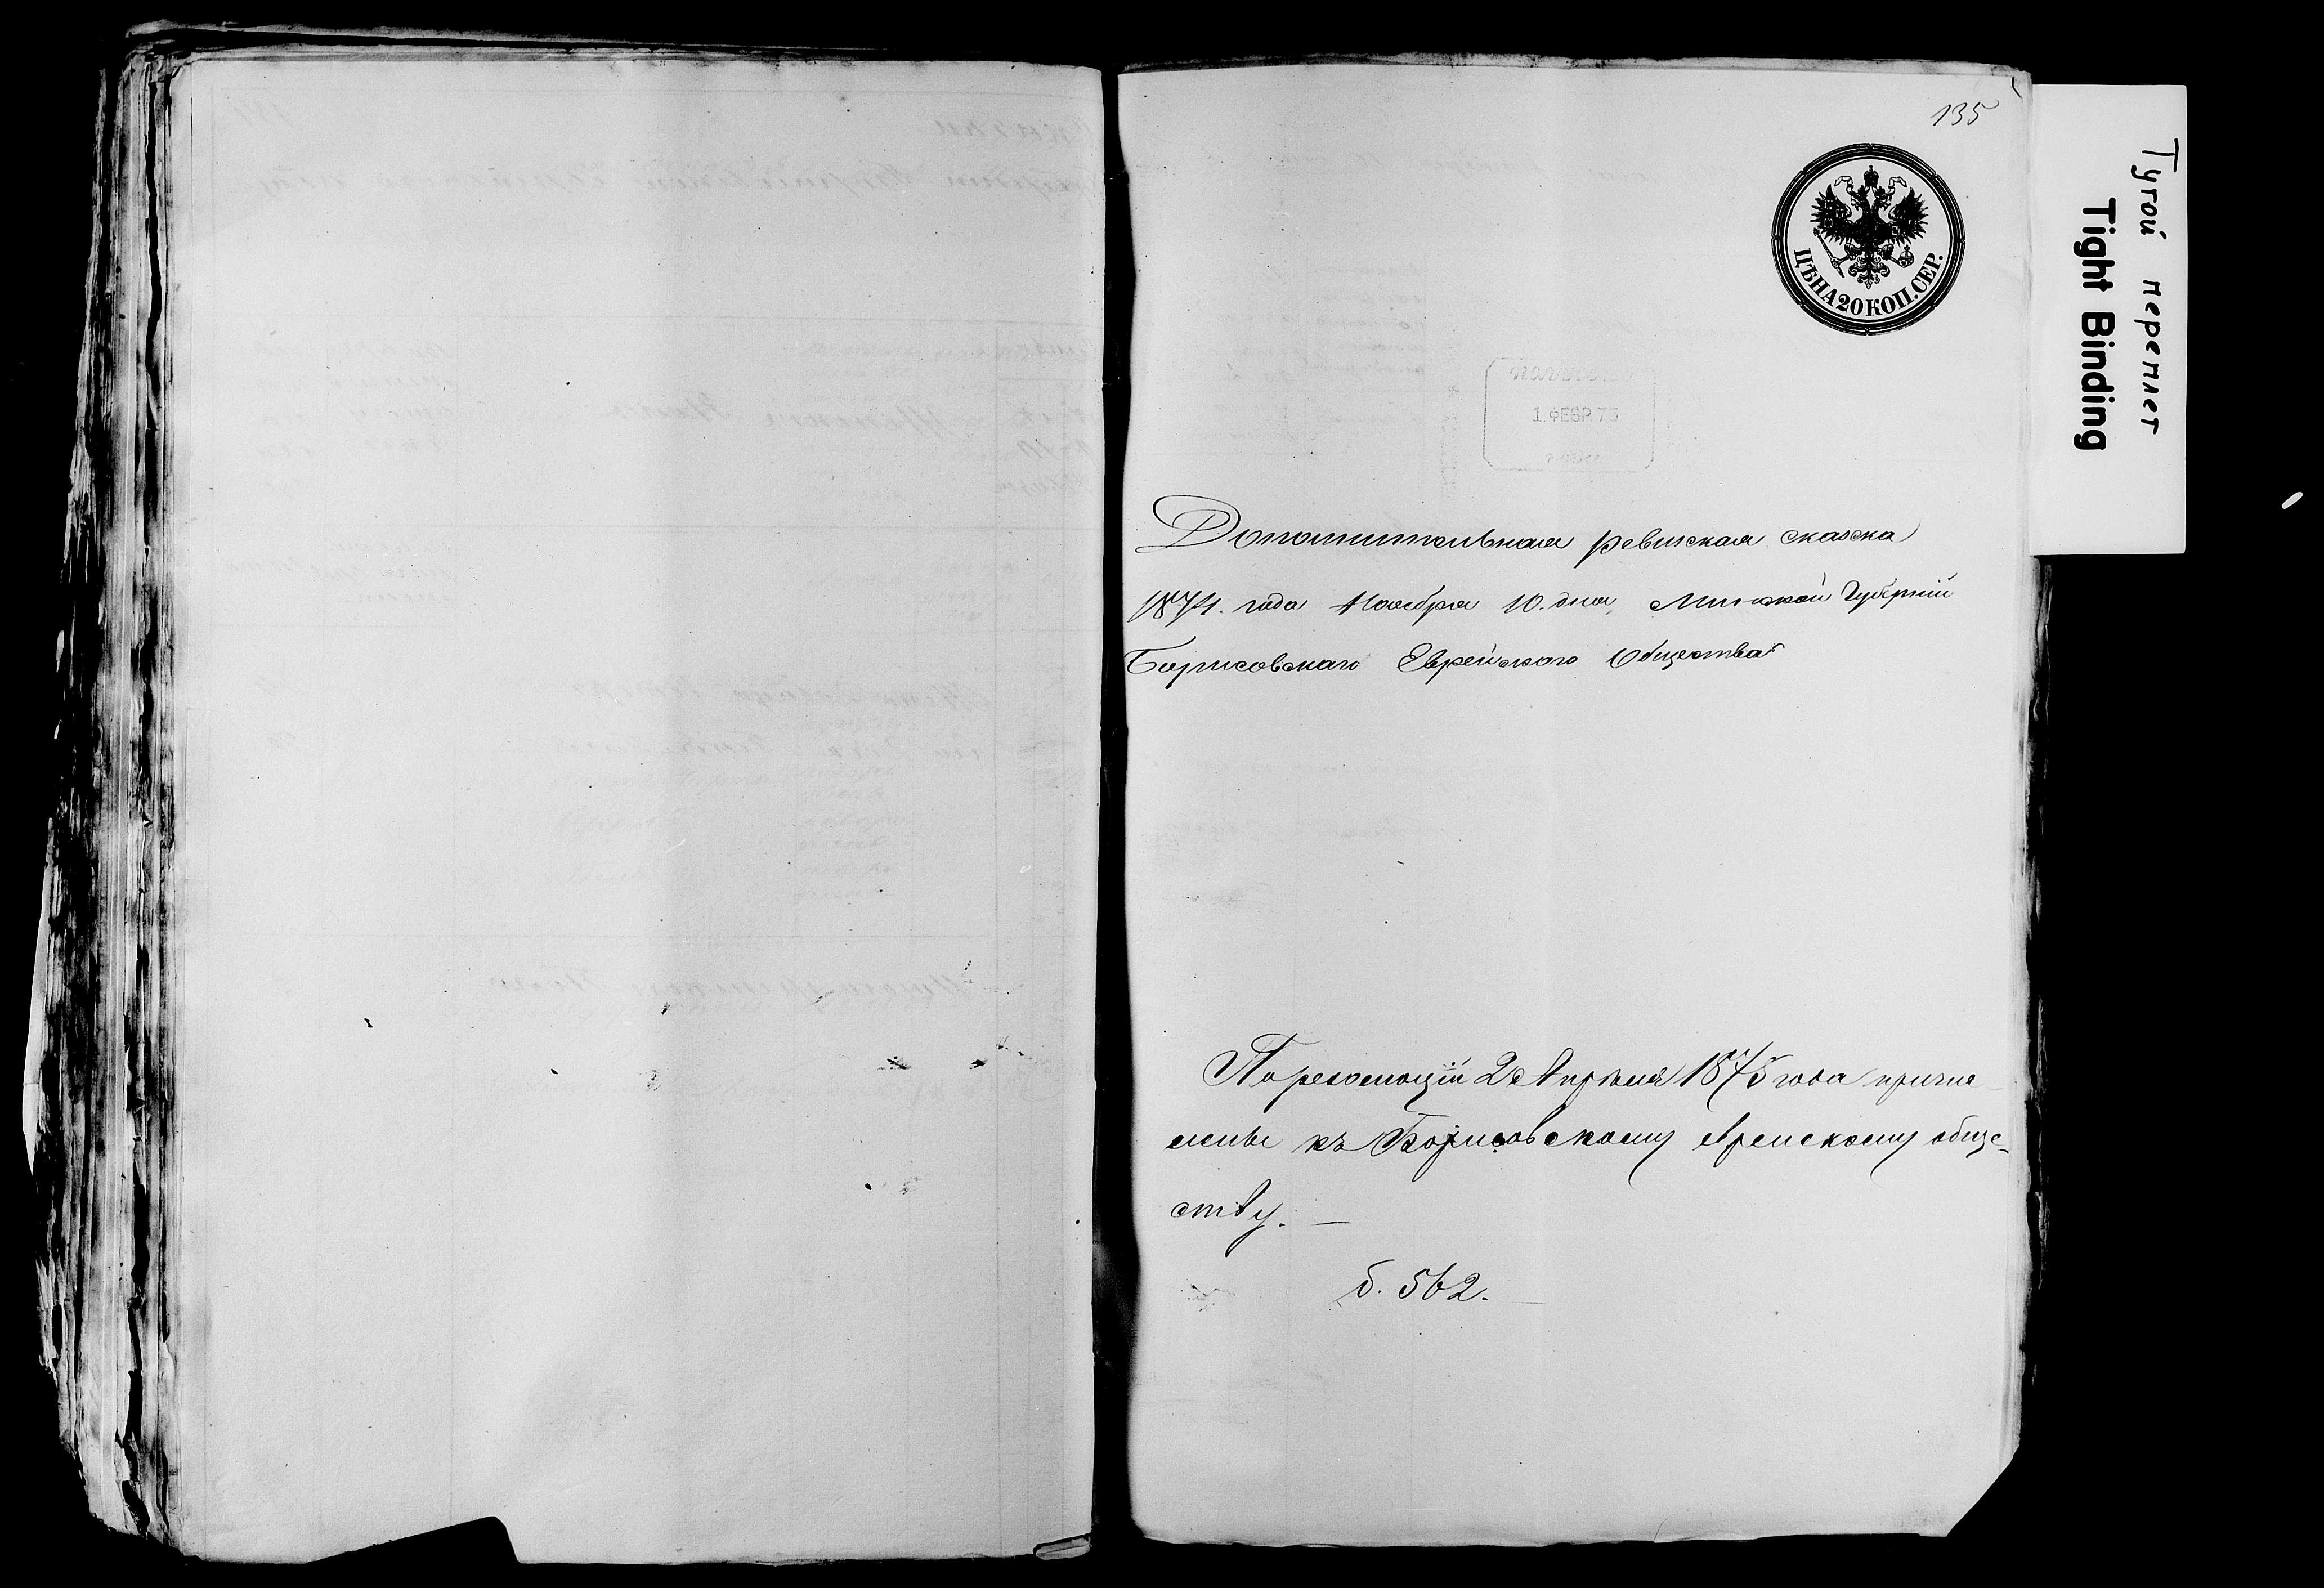 135
ЦѢНА 20 КОП. СЕР.
Тугой переплет
Tight Binding
1 ФЕВР. 75
Дополнительная ревизская сказка
1874. года Ноября 10. дня, Минской Губерніи
Борисовскаго Еврейскаго Общества
По резолюціи 2 Апрѣля 1875 года причис
лены къ Борисовскому еврейскому обще-
ству. —
б. 562.